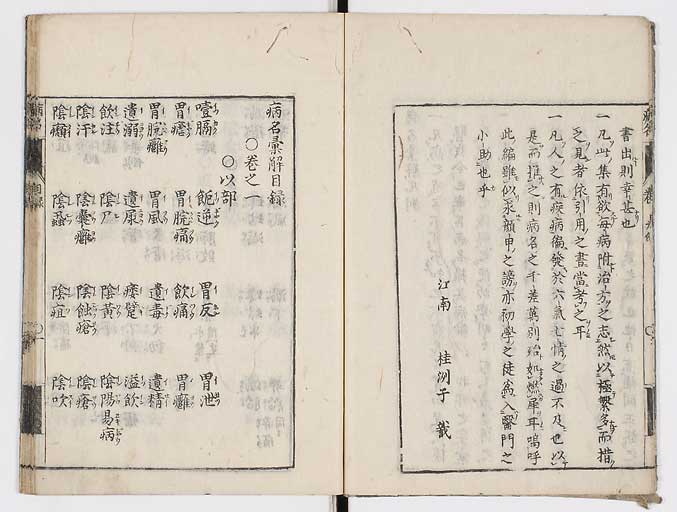 書出則幸甚也
一凡此集有欲毎病附治方之志然以極繁多而措
之見者依引用之書當考之耳
一凡人之有疾病偏發於六氣七情之過不及也以
是而推之則病名之千差萬別殆如燃犀耳嗚呼
此編雖似承顔申之謗亦初學之徒為入醫門之
小助也乎
江南 桂洲子 識
病名彙解目録
○卷之一
○以部
噎膈 飽逆 胃反 胃泄
胃瘡 胃脘痛 飲痛 胃癰
胃脘癰 胃風 遺毒 遺精
遺溺 遺尿 痿躄 溢飲
飲注 陰尸 陰黄 陰陽易病
陰汗 陰囊癰 陰蝕瘡 陰瘡
陰癩 陰蝨 陰疽 陰吹